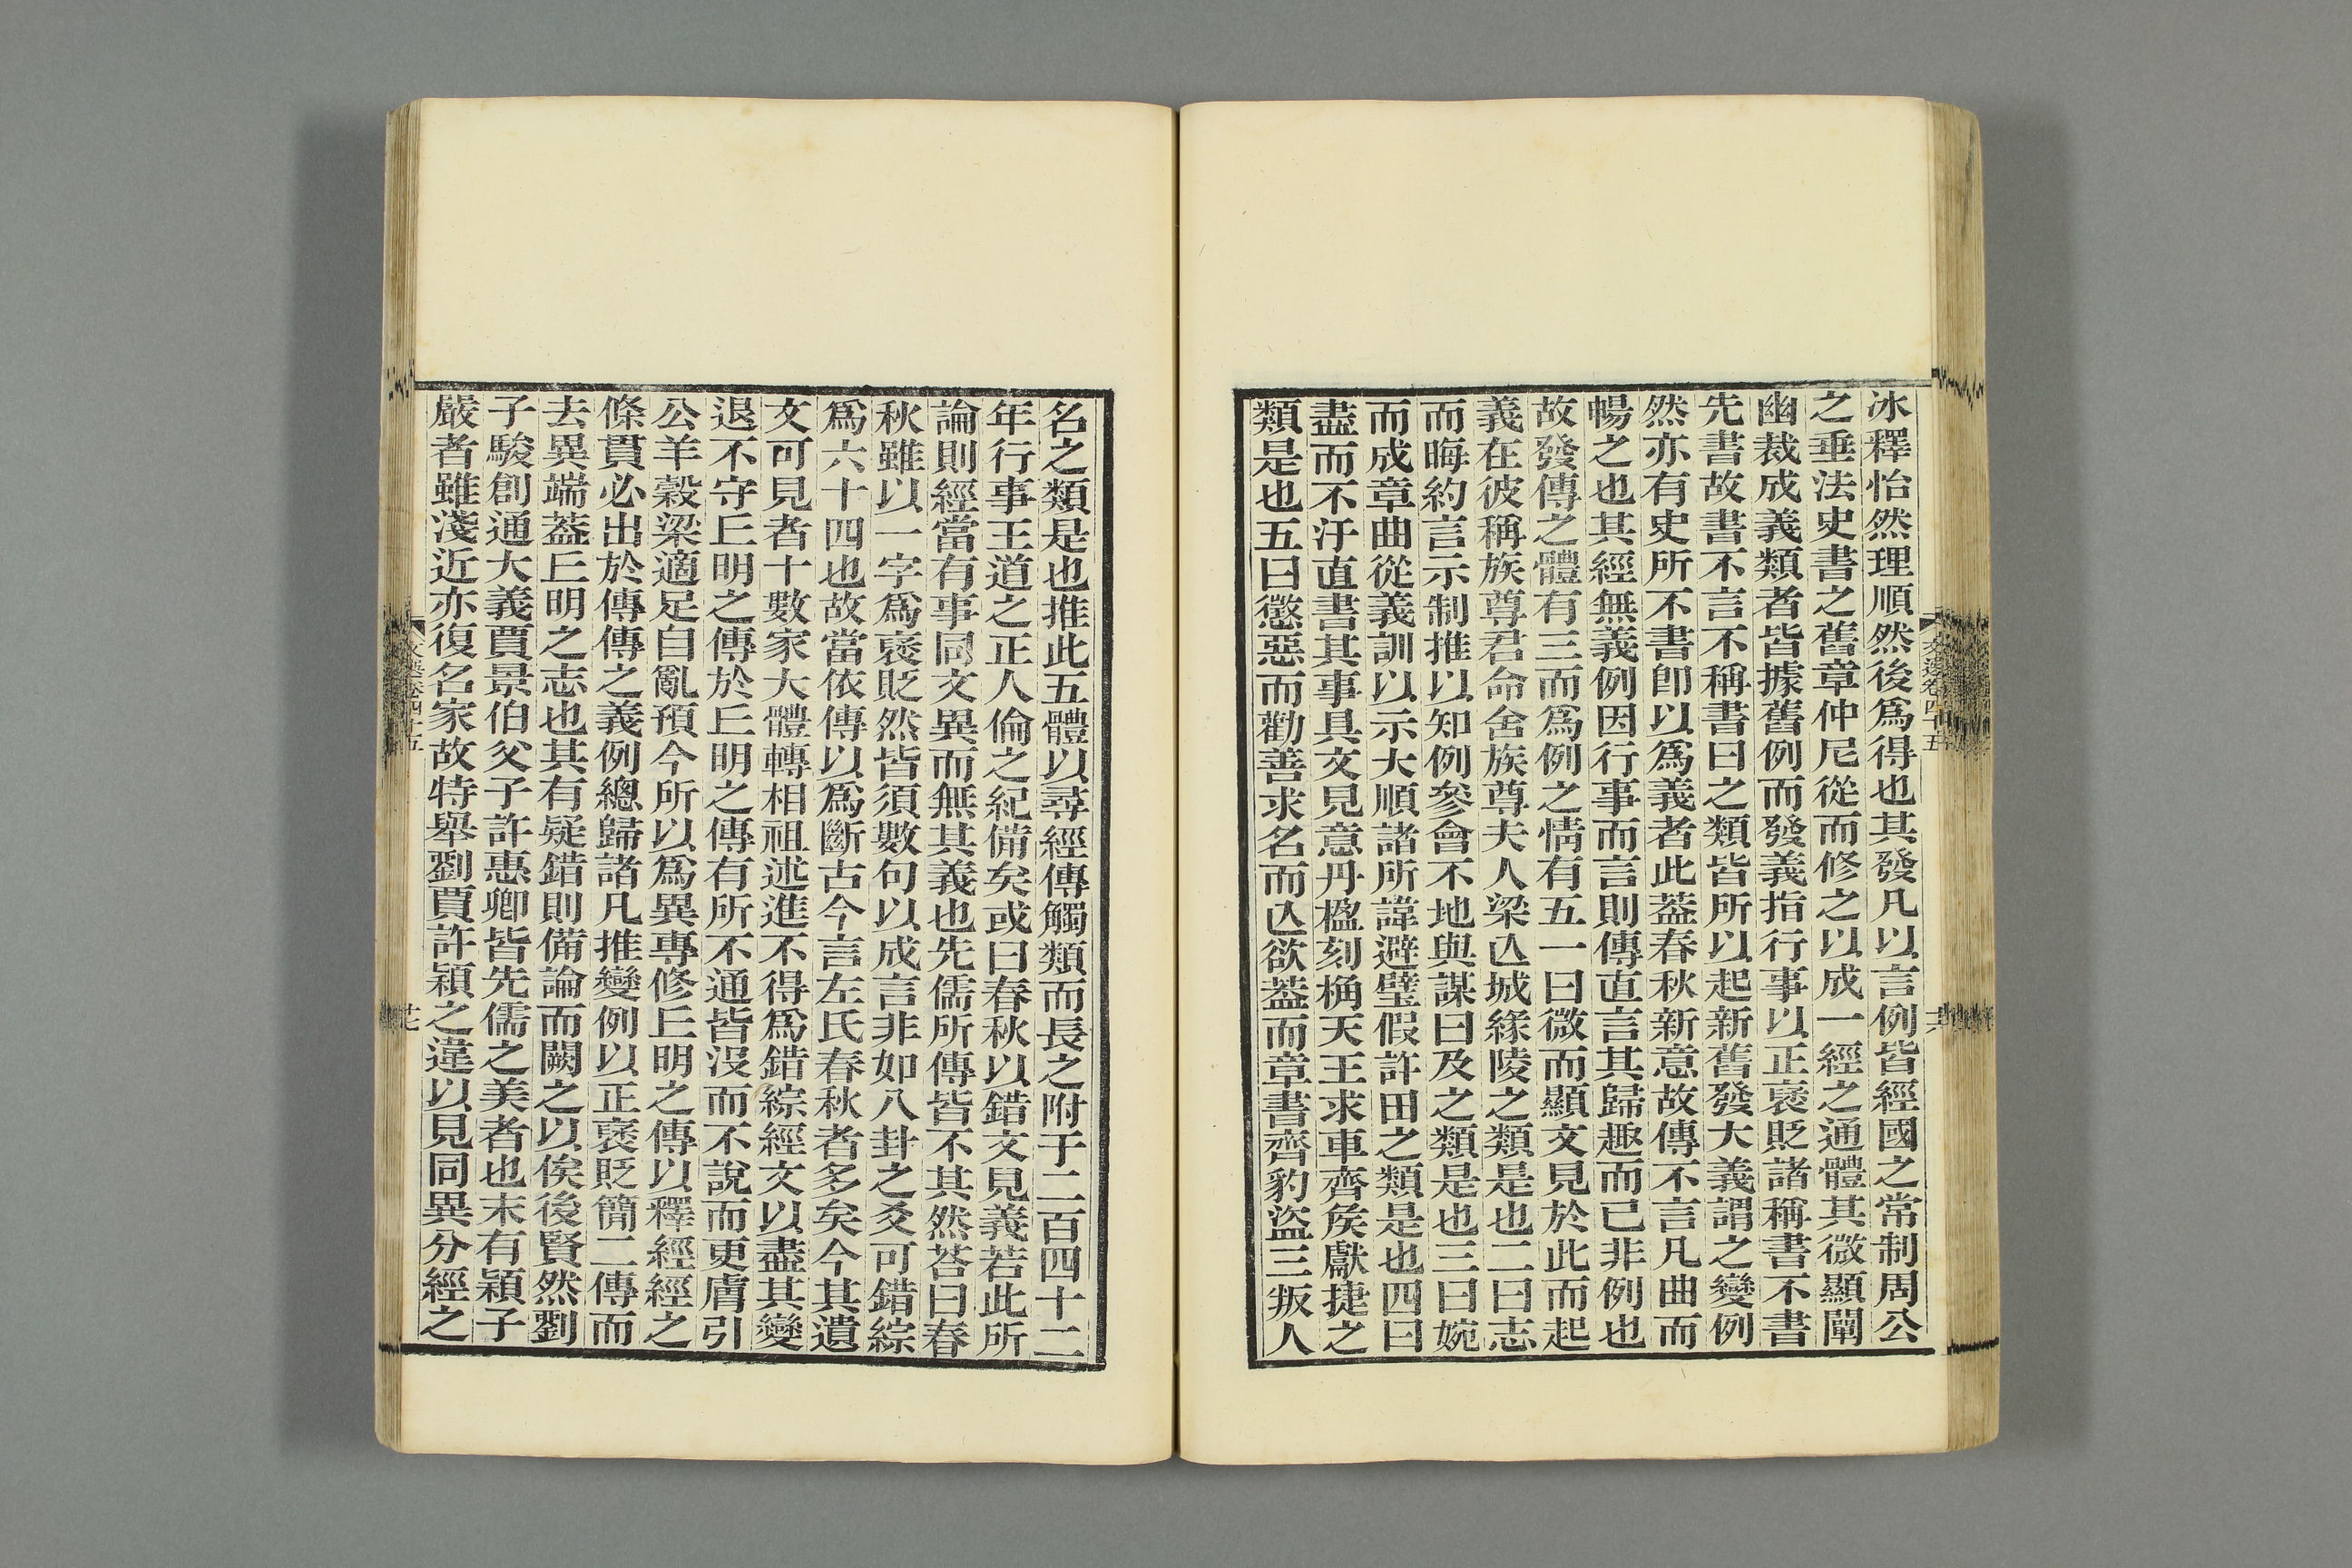 冰釋怡然理順然後爲得也其發凡以言例皆經國之常制周公
之垂法史書之舊章仲尼從而修之以成一經之通體其微顯闡
幽裁成義類者皆據舊例而發義指行事以正襃貶諸稱書不書
先書故書不言不稱書曰之類皆所以起新舊發大義謂之變例
然亦有史所不書卽以爲義者此葢春秋新意故傳不言凡曲而
暢之也其經無義例因行事而言則傳直言其歸趣而已非例也
故發傳之體有三而爲例之情有五一曰微而顯文見於此而起
義在彼稱族尊君命舍族尊夫人梁亾城緣陵之類是也二曰志
而晦約言示制推以知例參會不地與謀曰及之類是也三曰婉
而成章曲從義訓以示大順諸所諱避璧假許田之類是也四曰
盡而不汙直書其事具文見意丹楹刻桷天王求車齊矦獻捷之
類是也五曰懲惡而勸善求名而亾欲葢而章書齊豹盜三叛人
文選卷四十五
名之類是也推此五體以尋經傳觸類而長之附于二百四十二
年行事王道之正人倫之紀備矣或曰春秋以錯文見義若此所
論則經當有事同文異而無其義也先儒所傳皆不其然荅曰春
秋雖以一字爲襃貶然皆須數句以成言非如八卦之爻可錯綜
爲六十四也故當依傳以爲斷古今言左氏春秋者多矣今其遺
文可見者十數家大體轉相祖述進不得爲錯綜經文以盡其變
退不守丘明之傳於丘明之傳有所不通皆沒而不說而更膚引
公羊穀梁適足自亂預今所以爲異專修丘明之傳以釋經經之
條貫必出於傳傳之義例總歸諸凡推變例以正襃貶簡二傳而
去異端葢丘明之志也其有疑錯則備論而闕之以俟後賢然劉
子駿創通大義賈景伯父子許惠卿皆先儒之美者也末有潁子
嚴者雖淺近亦復名家故特舉劉賈許潁之違以見同異分經之
文選卷四十五